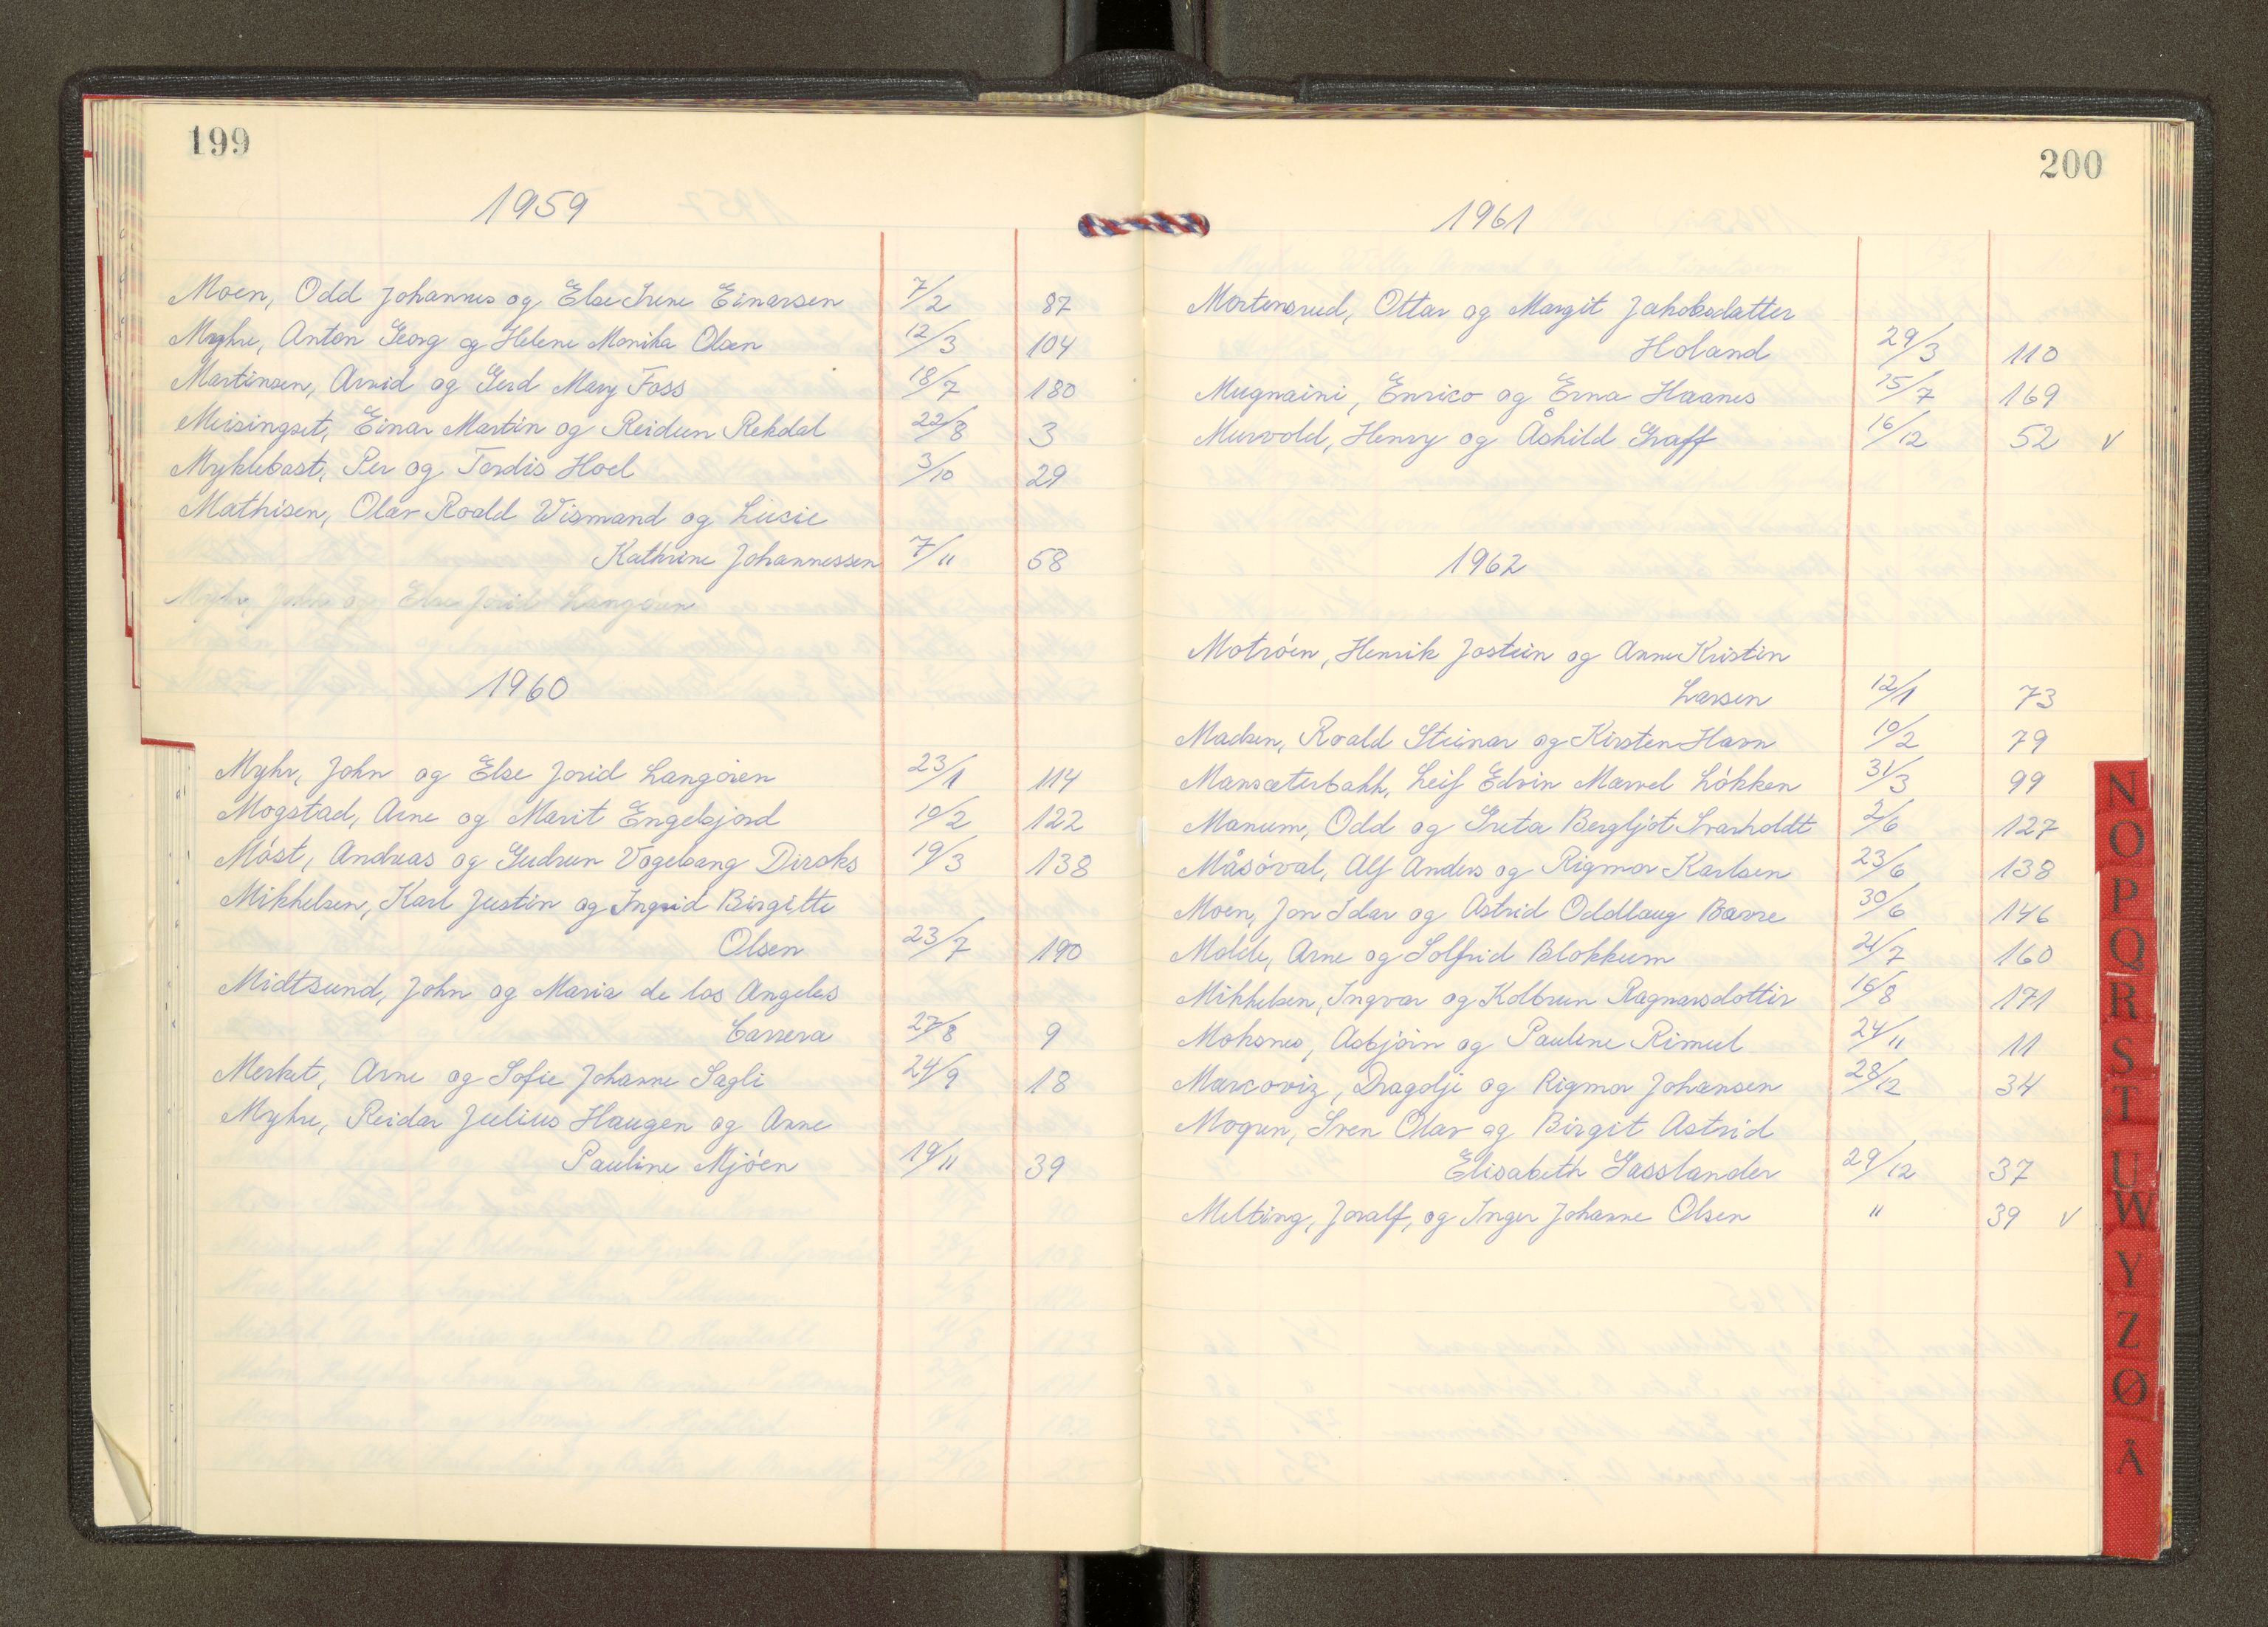 199
1959
Moen, Odd Johannes og Else Irene Einarsen 7/2 87
Myhre, Anton Georg og Helene Monika Olsen 12/3 104
Martinsen, Arvid og Gerd Mary Foss 18/7 180
Meisingset, Einar Martin og Reidun Rekdal 22/8 3
Myklebost, Per og Tordis Hoel 3/10 29
Mathisen, Olav Roald Wismand og Lucie
Kathrine Johannessen 7/11 58
Myhr, John og Else Jorid Langören
1960
Myhr, John og Else Jorid Langören 23/1 114
Mogstad, Arne og Marit Engelsjord 10/2 122
Möst, Andreas og Gudrun Vogelsang Dircks 19/3 138
Mikkelsen, Karl Justin og Ingrid Birgitte
Olsen 23/7 190
Midtsund, John og Maria de los Angeles
Carrera 27/8 9
Merket, Arne og Sofie Johanne Sagli 24/9 18
Myhre, Reidar Julius Haugen og Anne
Pauline Mjöen 19/11 39
200
1961
Mortensrud, Ottar og Margit Jakobsdatter
Holand 29/3 110
Mugnaini, Enrico og Erna Haanes 15/7 169
Murvold, Henry og Åshild Graff 16/12 52 v
1962
Motröen, Henrik Jostein og Anne Kristin
Larsen 12/1 73
Madsen, Roald Steinar og Kirsten Havn 10/2 79
Mansæterbakk, Leif Edvin Marvel Lökken 31/3 99
Manum, Odd og Greta Bergljot Svarholdt 2/6 127
Måsöval, Alf Anders og Rigmor Karlsen 23/6 138
Moen, Jon Idar og Astrid Oddlaug Bævre 30/6 146
Molde, Arne og Solfrid Blokkum 21/7 160
Mikkelsen, Ingvar og Kolbrun Ragnarsdottir 16/8 171
Moksnes, Asbjörn og Pauline Rimul 24/11 11
Marcoviz, Dragolji og Rigmor Johansen 28/12 34
Mogren, Sven Olav og Birgit Astrid
Elisabeth Gasslander 29/12 37
Melting, Joralf, og Inger Johanne Olsen " 39 v
N
O
P
Q
R
S
T
U
W
Y
Z
Ø
Å